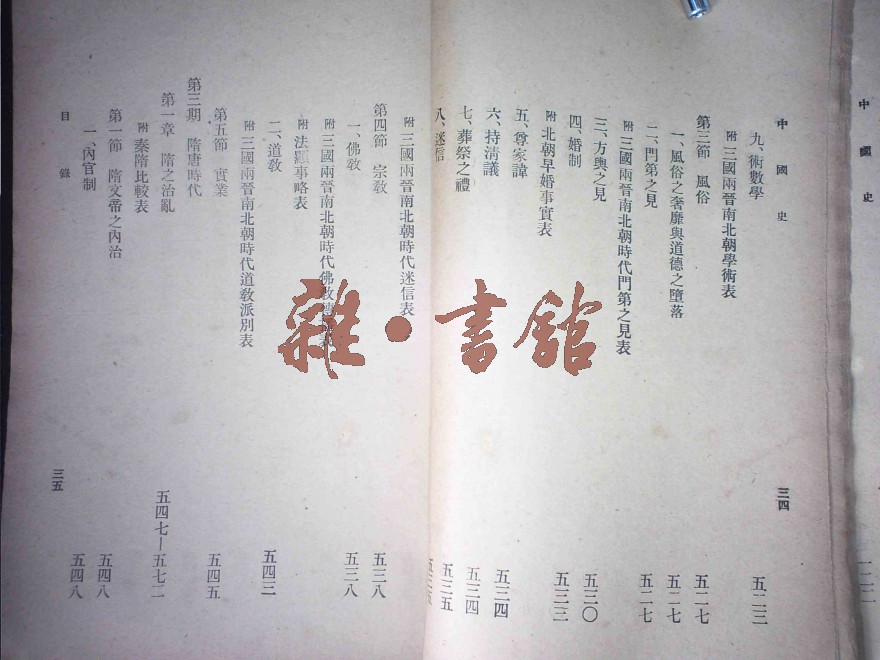 中國史
三四
九、術數學 五二三
附 三國兩晉南北朝學術表
第三節 風俗 五二七
一、風俗之奢靡與道德之墮落 五二七
二、門第之見 五二七
附 三國兩晉南北朝時代門第之見表
三、方輿之見
四、婚制 五三〇
附 北朝早婚事實表 五三三
五、尊家諱
六、持清議 五三四
七、葬祭之禮 五三四
八、迷信 五三五
附 三國兩晉南北朝時代迷信表
第四節 宗教 五三八
一、佛教 五三八
附 三國兩晉南北朝時代佛教
附 法顯事略表
二、道教 五四三
附 三國兩晉南北朝時代道教派別表
第五節 實業 五四五
第三期 隋唐時代
第一章 隋之治亂 五四七—五七二
附 秦隋比較表
第一節 隋文帝之內治 五四八
一、內官制 五四八
目錄
三五
中國史
雜·書館